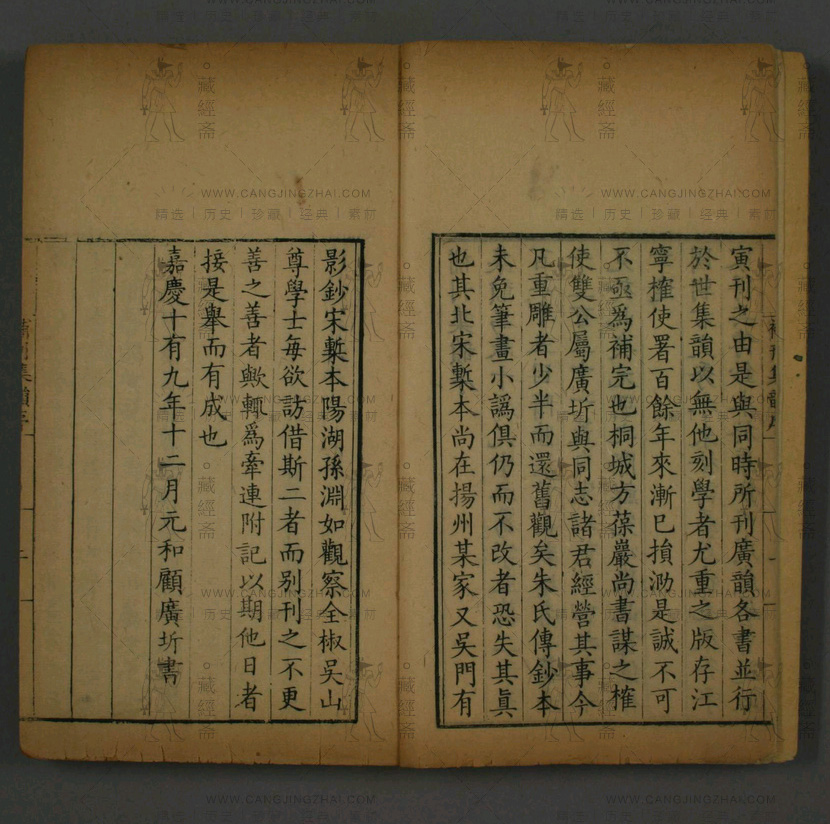 寅刊之由是與同時所刊廣韻各書並行
於世集韻以無他刻學者尤重之版存江
寧榷使署百餘年來漸已損泐是誠不可
不亟為補完也桐城方葆巖尚書謀之榷
使雙公屬廣圻與同志諸君經營其事今
凡重雕者少半而還舊觀矣朱氏傳鈔本
未免筆畫小譌俱仍而不改者恐失其眞
也其北宋槧本尚在揚州某家又吳門有
影鈔宋槧本陽湖孫淵如觀察全椒吳山
尊學士每欲訪借斯二者而別刊之不更
善之善者歟輒爲牽連附記以期他日者
接是舉而有成也
嘉慶十有九年十二月元和顧廣圻書
藏經斋
WWW.CANGJINGZHAI.COM
精选 | 历史 | 珍藏 | 经典 | 素材